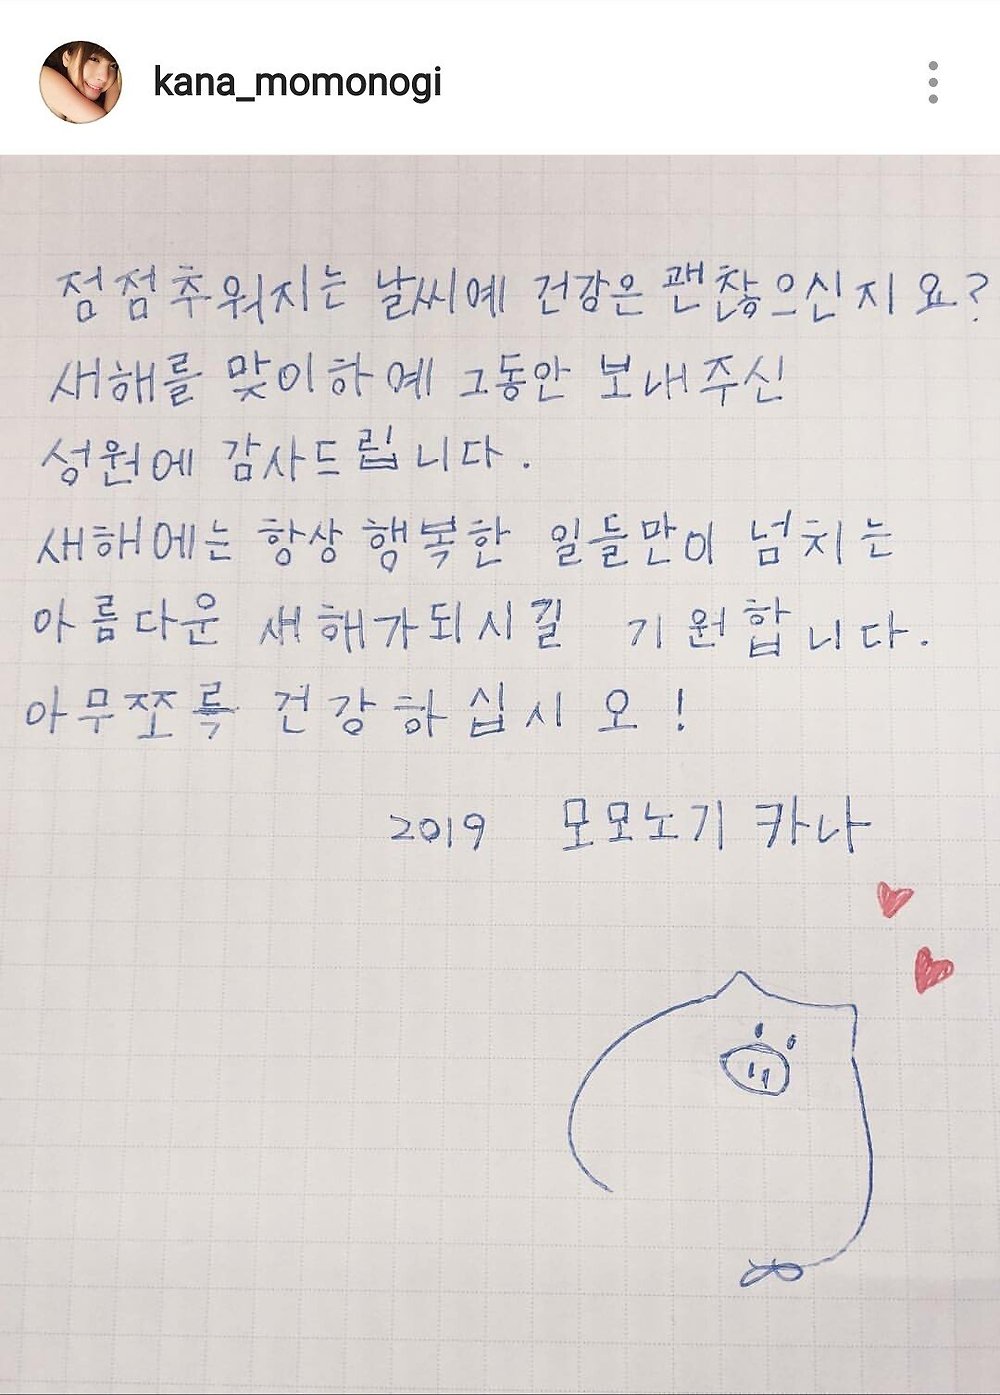 kana_momonogi
점점추워지는 날씨에 건강은 괜찮으신지요?
새해를 맞이하예 그동안 보내주신
성원에 감사드립니다.
새해에는 항상 행복한 일들만이 넘치는
아름다운 새해가되시길 기원합니다.
아무쪼록 건강하십시오!
2019 모모노기 카나